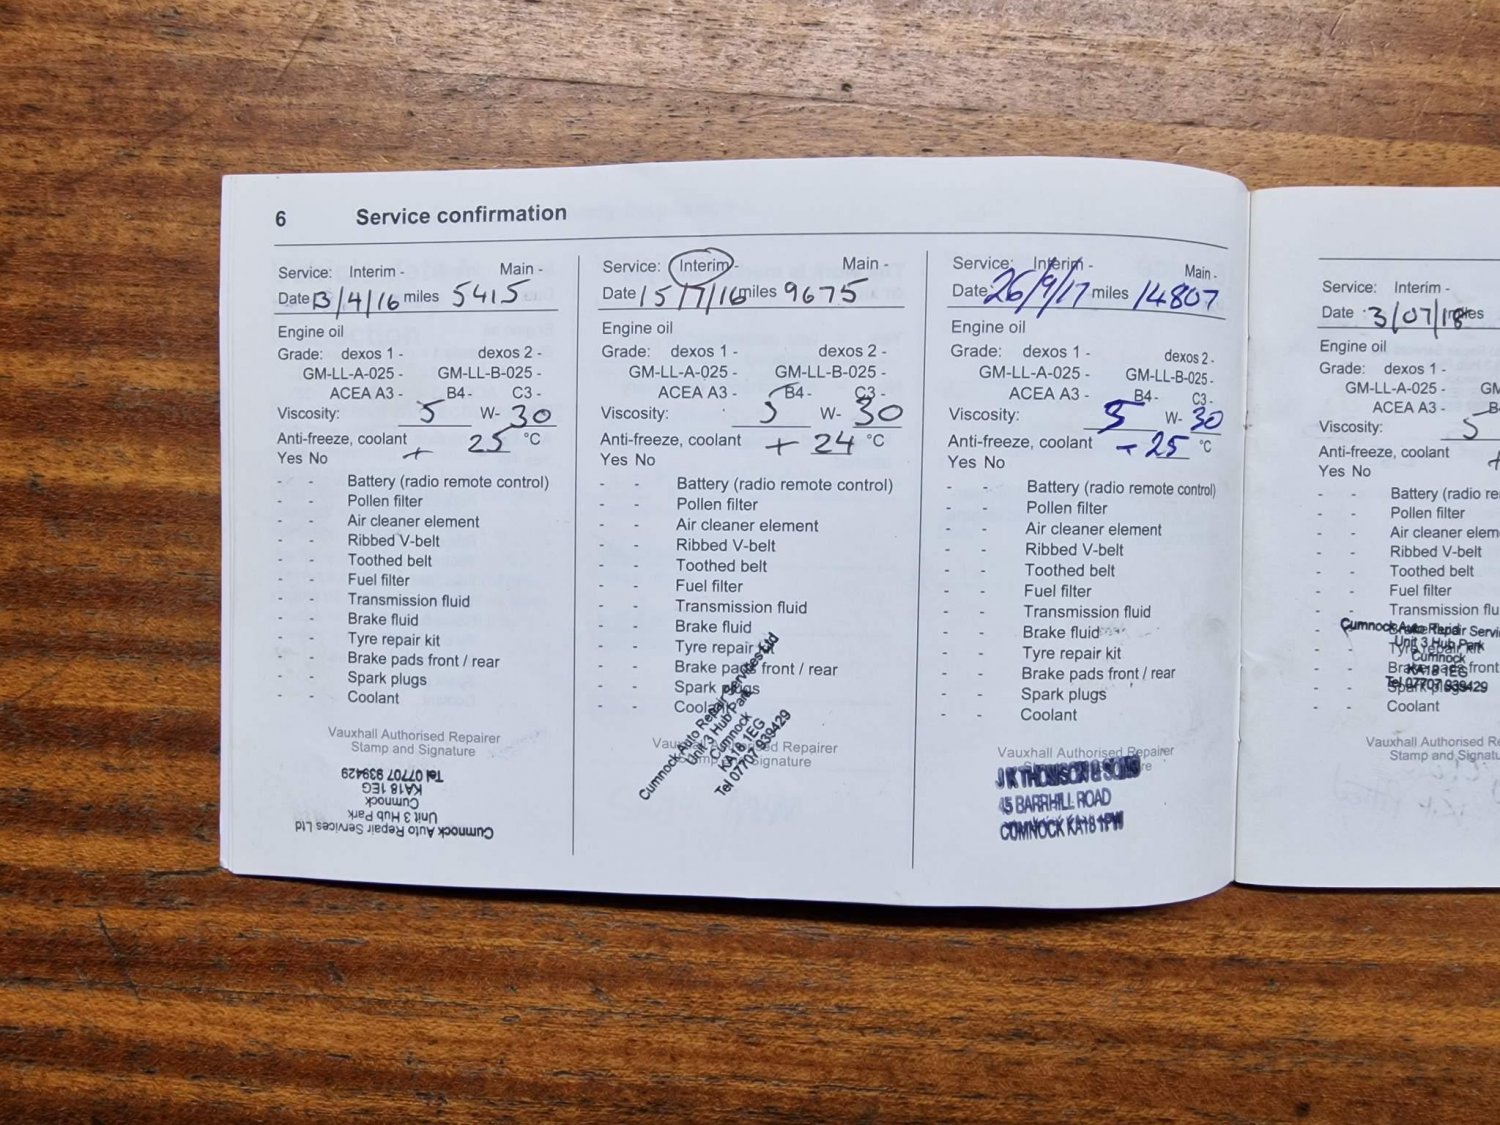 6 Service confirmation
Service: Interim - Main -
Date 13/4/16 miles 5415
Engine oil
Grade: dexos 1 - dexos 2 -
GM-LL-A-025 - GM-LL-B-025 -
ACEA A3 - B4 - C3 -
Viscosity: 5 W- 30
Anti-freeze, coolant + 25 °C
Yes No
- - Battery (radio remote control)
- - Pollen filter
- - Air cleaner element
- - Ribbed V-belt
- - Toothed belt
- - Fuel filter
- - Transmission fluid
- - Brake fluid
- - Tyre repair kit
- - Brake pads front / rear
- - Spark plugs
- - Coolant
Vauxhall Authorised Repairer
Stamp and Signature
Cumnock Auto Repair Services Ltd
Unit 3 Hub Park
Cumnock
KA18 1EG
Tel 07707 939429
Service: Interim - Main -
Date 15/7/16 miles 9675
Engine oil
Grade: dexos 1 - dexos 2 -
GM-LL-A-025 - GM-LL-B-025 -
ACEA A3 - B4 - C3 -
Viscosity: 5 W- 30
Anti-freeze, coolant + 24 °C
Yes No
- - Battery (radio remote control)
- - Pollen filter
- - Air cleaner element
- - Ribbed V-belt
- - Toothed belt
- - Fuel filter
- - Transmission fluid
- - Brake fluid
- - Tyre repair kit
- - Brake pads front / rear
- - Spark plugs
- - Coolant
Vauxhall Authorised Repairer
Stamp and Signature
Cumnock Auto Repair Services Ltd
Unit 3 Hub Park
Cumnock
KA18 1EG
Tel 07707 939429
Service: Interim - Main -
Date 26/9/17 miles 14807
Engine oil
Grade: dexos 1 - dexos 2 -
GM-LL-A-025 - GM-LL-B-025 -
ACEA A3 - B4 - C3 -
Viscosity: 5 W- 30
Anti-freeze, coolant - 25 °C
Yes No
- - Battery (radio remote control)
- - Pollen filter
- - Air cleaner element
- - Ribbed V-belt
- - Toothed belt
- - Fuel filter
- - Transmission fluid
- - Brake fluid
- - Tyre repair kit
- - Brake pads front / rear
- - Spark plugs
- - Coolant
Vauxhall Authorised Repairer
Stamp and Signature
J K THOMSON & SONS
45 BARRHILL ROAD
CUMNOCK KA18 1PW
Service: Interim -
Date 3/07/18 miles
Engine oil
Grade: dexos 1 -
GM-LL-A-025 - GM
ACEA A3 - B
Viscosity: 5
Anti-freeze, coolant +
Yes No
- - Battery (radio re
- - Pollen filter
- - Air cleaner elem
- - Ribbed V-belt
- - Toothed belt
- - Fuel filter
- - Transmission flu
- - Brake fluid
- - Tyre repair kit
- - Brake pads front
- - Spark plugs
- - Coolant
Cumnock Auto Repair Servi
Unit 3 Hub Park
Cumnock
KA18 1EG
Tel 07707 939429
Vauxhall Authorised Re
Stamp and Signat